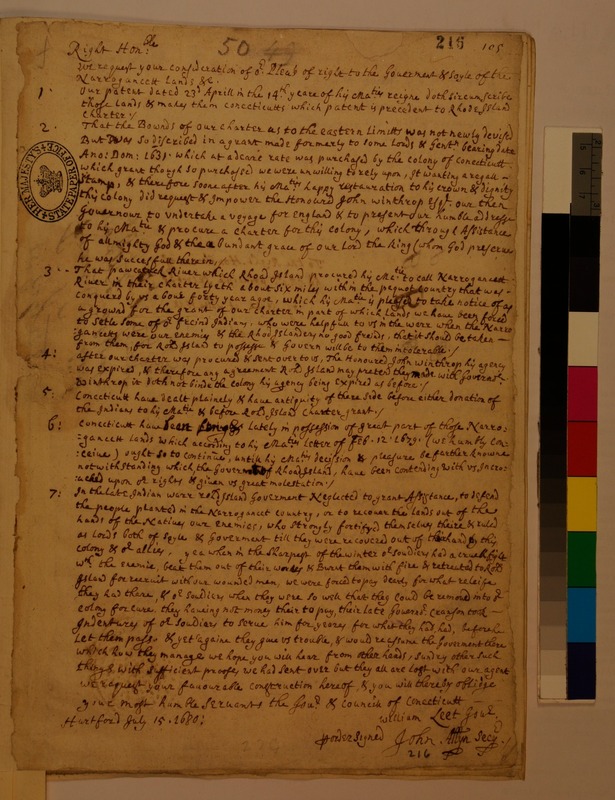 50 49
216 105
Right Hon:ble
We request your consideration of or Pleas of right to the Goverment & soyle of the
Narrogancett Lands &c.
1. Our patent dated 23d Aprill in the 14th yeare of his Maties reigne doth circumscribe
those lands & makes them conecticutts which patent is precedent to Rhode Island
Charter:/
2. That the Bounds of our charter as to the eastern Limitts was not newly devised
But was so discribed in a grant made formerly to some Lords & Gentn bearing date
Ano: Dom: 1631. which at a deare rate was purchased by the colony of conecticutt
which grant though so purchased we were unwilling to rely upon, It wanting a regall
stamp, & therefore soone after his Maties happy restauration to his crown & dignity
this colony did request & impower the Honoured John winthrop Esqr. our then
Governour to undertake a voyage for England & to present our humble address
to his Matie & procure a charter for this colony, which through Assistance
of allmighty God & the abundant grace of our Lord the King (whom God preserve
he was successfull therein./
3. That pawcatuck River which Rhod Island procured his Matie to call Narrogancett
River in their charter lyeth about six miles within the pequot country that was
conquerd by us about forty yeare agoe, which his Matie is pleased to take notice of as
a ground for the grant of our charter in part of which lands we have been forced
to setle some of or freind Indians, who were helpfull to us in the warr when the Narro
gancetts were our enemies & the Rhod Islanders no good freinds, that it should be taken
from them, for Rod Island to possess & Govern will be to them intolerable:/
4. after our charter was procured & sent over to us, The Honoured John winthrop his agency
was expired, & therefore any agreement Rod Island may pretend they made with Governr
Winthrop it doth not binde the colony his agency being expired as before:/
5. Conecticutt have dealt plainely & have antiquity of there side before either donation of
the Indians to his Matie & before Rod Island Charter grant:/
6: Conecticutt have lately in possession of great part of those Narro:
:gancett lands which according to his Maties letter of Feb. 12. 1679. (we humbly con:
:ceive) ought so to continue, untill his Maties decision & pleasure be farther knowne
notwithstanding which the Goverment of Rhoad Island, have been contending with us, incro:
:ached upon or rights & given us great molestation:/
7: In the late Indian warr Rod Island Goverment Neglected to grant Assistance, to defend
the people planted in the Narrogancett country, or to recover the lands out of the
hands of the Natives our enemies, who strongly fortifyed themselves there & ruled
as Lords both of soyle & Goverment till they were recovered out of their hands by this
colony & or allies, yea when in the sharpest of the winter or souldiers had a
wth the enemie, beat them out of their workes & Burnt them with fire & retreated to Rod
Island for recruit with our wounded men, we were forced to pay dearly for what releife
they had there, & or souldiers when they were so well that they could be removed into or
colony for cure, they haveing not money their to pay, their late Governr
Indentures of or souldiers to serve him for yeares for what they had had, before he
Let them passe & yet againe they give us trouble, & would reassume the Goverment there
which how they manage we hope you will hear from other hands, sundry other such
things with sufficient proofe, we had sent over but they all are lost with our agent
We request your favourable construction hereof, & you will thereby oblidge
your most humble servants the Govr & Council of Conecticutt
Hartford July 15. 1680:
William Leet Govr.
p order signed John Allyn Secry:/
216
HER MAJESTY'S STATE PAPER OFFICE